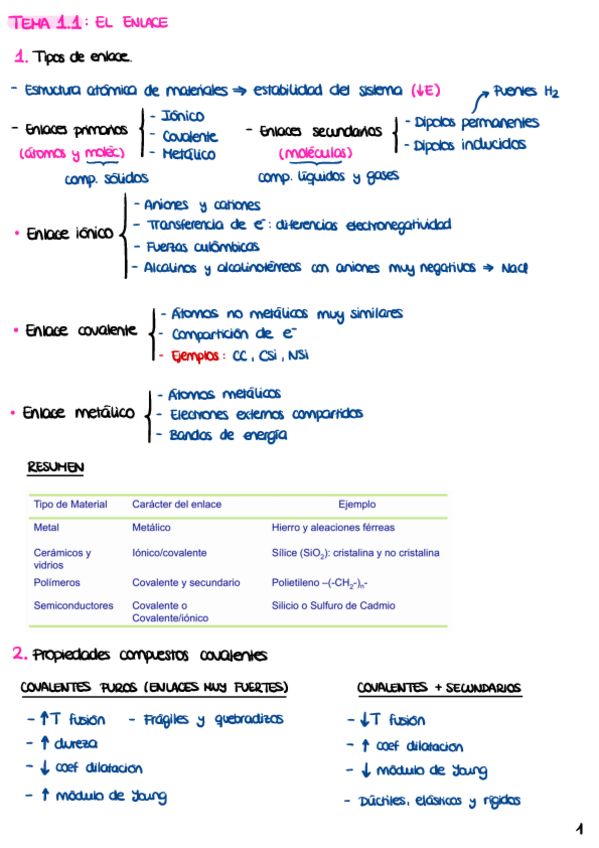 TEMA 1.1: EL ENLACE
1. Tipos de enlace.
- Estructura atómica de materiales ⇒ estabilidad del sistema (↓E)
Puentes H2
- Enlaces primarios
(átomos y moléc)
comp. sólidos
- Iónico
- Covalente
- Metálico
- Enlaces secundarios
(moléculas)
comp. líquidos y gases
- Dipolos permanentes
- Dipolos inducidos
• Enlace iónico
- Aniones y cationes
- Transferencia de e⁻: diferencias electronegatividad
- Fuerzas culómbicas
- Alcalinos y alcalinotérreos con aniones muy negativos ⇒ NaCl
• Enlace covalente
- Átomos no metálicos muy similares
- Compartición de e⁻
- Ejemplos: CC, CSi, NSi
• Enlace metálico
- Átomos metálicos
- Electrones externos compartidos
- Bandas de energía
RESUMEN
Tipo de Material Carácter del enlace Ejemplo
Metal Metálico Hierro y aleaciones férreas
Cerámicos y vidrios Iónico/covalente Sílice (SiO2): cristalina y no cristalina
Polímeros Covalente y secundario Polietileno –(-CH2-)n-
Semiconductores Covalente o Covalente/iónico Silicio o Sulfuro de Cadmio
2. Propiedades compuestos covalentes
COVALENTES PUROS (ENLACES MUY FUERTES)
- ↑T fusión - Frágiles y quebradizos
- ↑ dureza
- ↓ coef dilatación
- ↑ módulo de Young
COVALENTES + SECUNDARIOS
- ↓T fusión
- ↑ coef dilatación
- ↓ módulo de Young
- Dúctiles, elásticos y rígidos
1